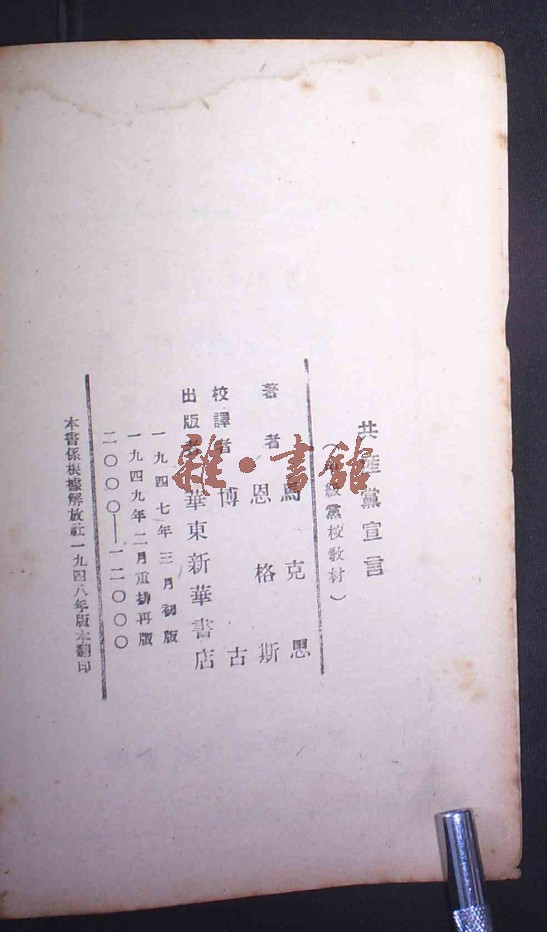 共產黨宣言
級黨校教材）
著者 馬克思
恩格斯
校譯者 博古
出版者 華東新華書店
一九四七年三月初版
一九四九年二月重排再版
二〇〇〇—一二〇〇〇
本書係根據解放社一九四八年版本翻印
雜·書館